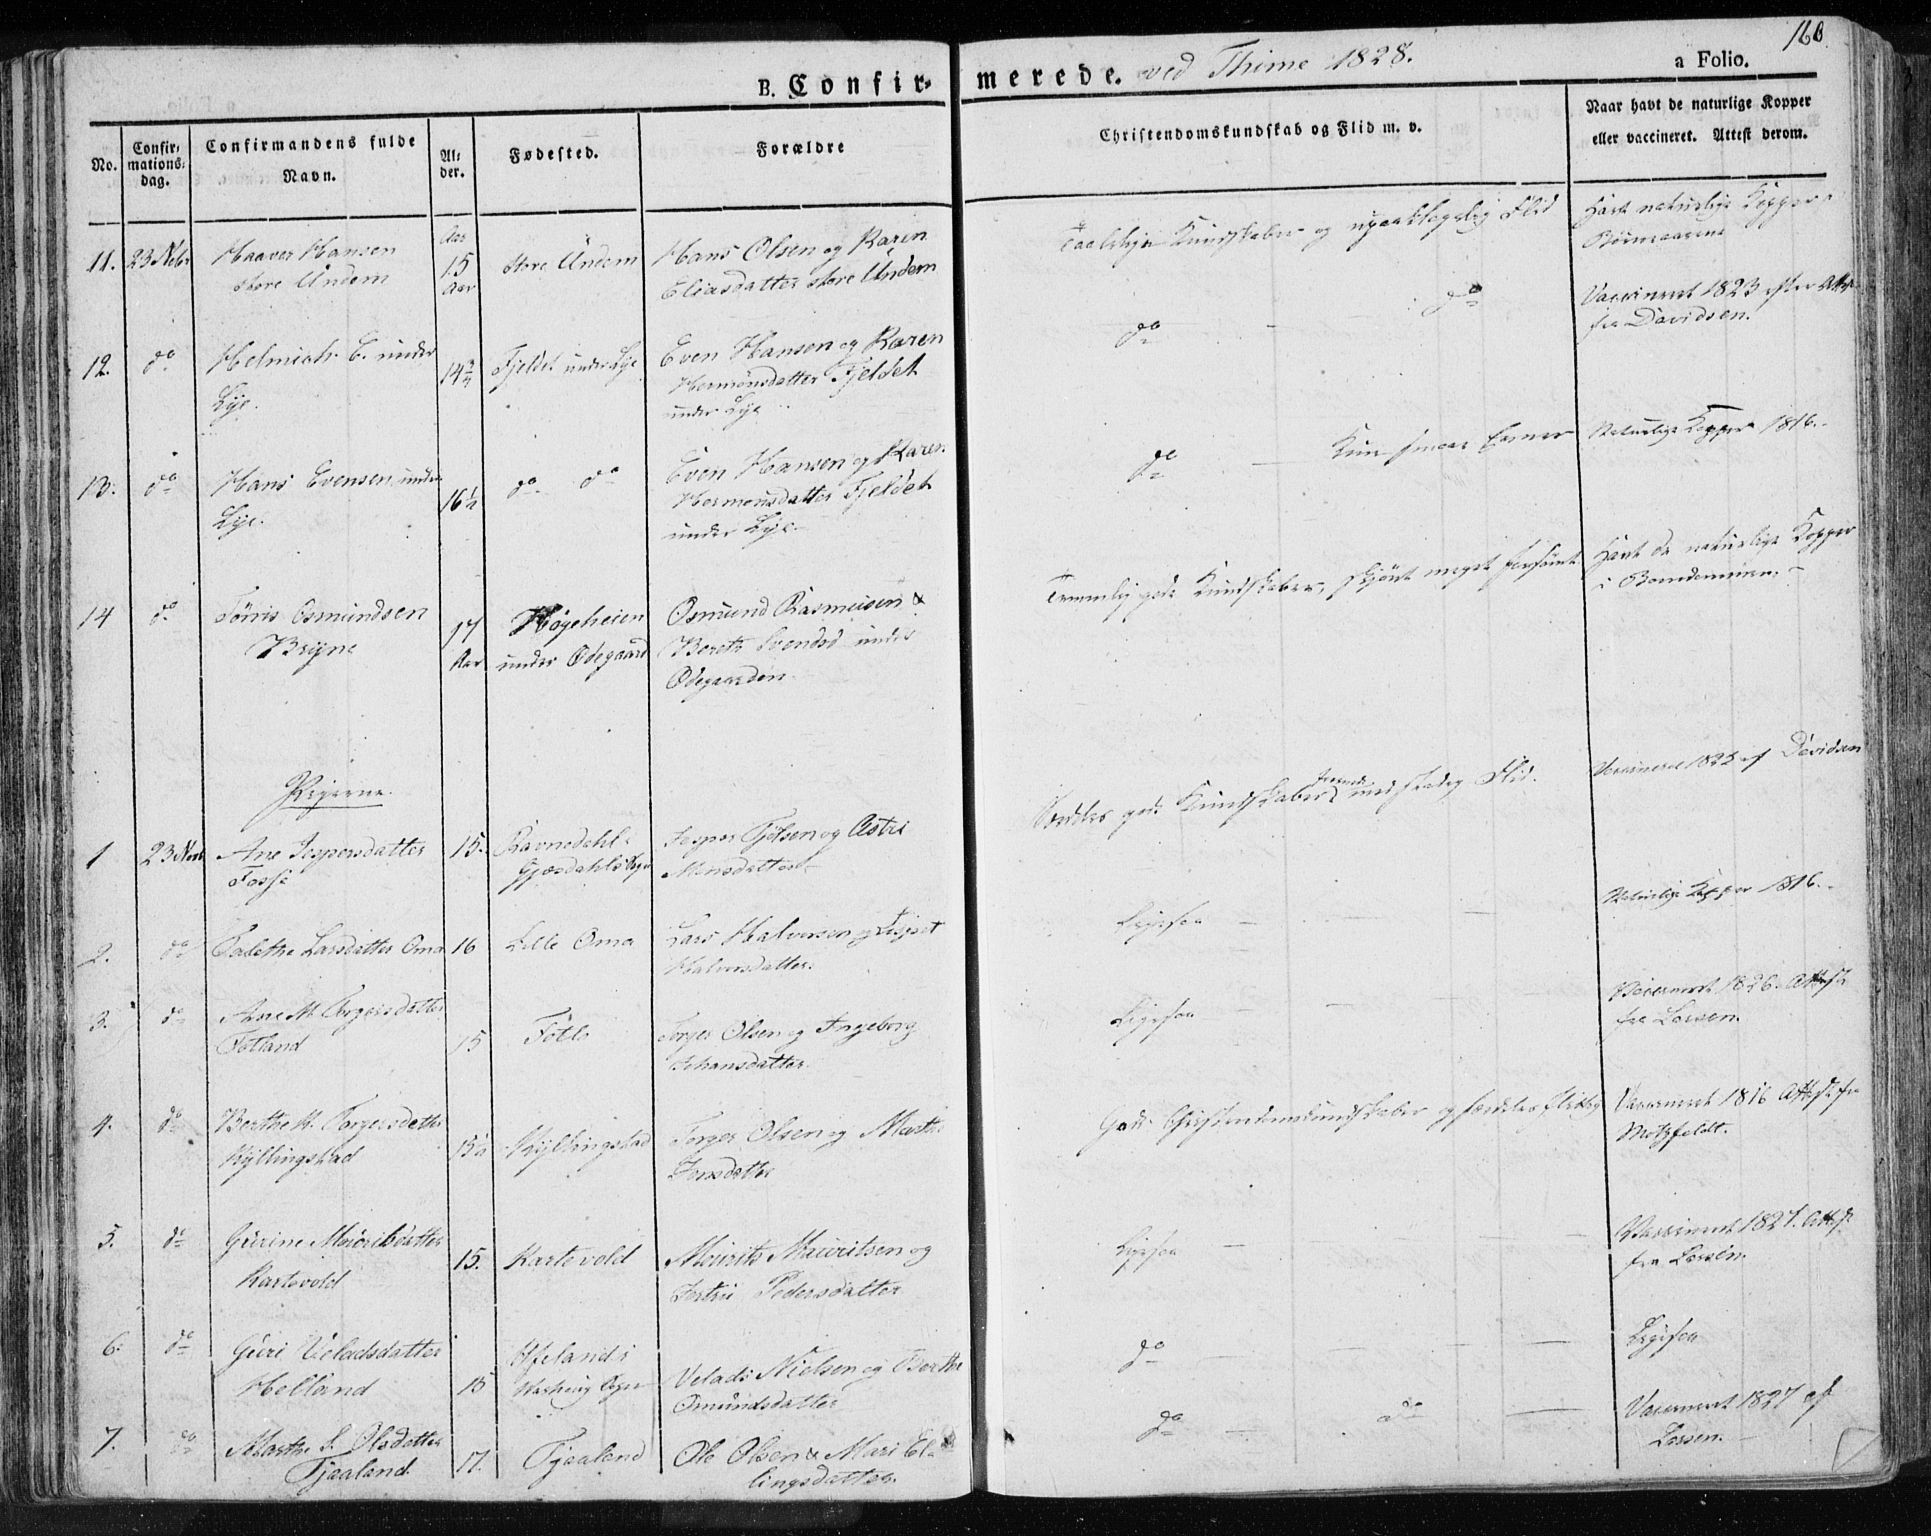 160
B. Confirmerede. ved Thime 1828.
a Folio.
No.
Confirmationsdag.
Confirmandens fulde Navn.
Alder.
Fødested.
Forældre
Christendomskundskab og Flid m. v.
Naar havt de naturlige Kopper
eller vaccineret. Attest derom.
11. 23 Nobr Haaver Hansen
store Undem
Aar
15
Aar
store Undem
Hans Olsen og Karen
Eliasdatter store Undem
Taalelige Kundskaber og upaaklagelig Flid
Havt naturlige Kopper i
Børneaarene
12. do Helmich E. under
Lye.
14 3/4
Fjeldet under Lye
Even Hansen og Karen
Hermonsdatter Fjeldet
under Lye
do - do
Vaccineret 1823 efter Att
fra Davidsen.
13. do Hans Evensen under
Lye.
16 1/2
do do
Even Hansen og Karen
Hermonsdatter Fjeldet
under Lye
do - Kun smaa Evner
Naturlige Kopper 1816.
14 do Tønis Osmundsen
Bryne
17
Aar
Høgeheien
under Ødegaard
Osmund Rasmusen &
Berete Svendsd under
Ødegaarden
Temmelig gode Kundskaber, skjønt meget forsømt
Havt de naturlige Kopper
i Barndommen.
Pigerne.
1 23 Nov Ane Jespersdatter
Fosse
15.
Ravnedahl
Gjesdahls Sogn
Jesper Tjølsen og Astri
Monsdatter
gode Kundskaber med stadig Flid.
Vaccineret 1825 af Davidsen
2. do Talethe Larsdatter Oma
16
Lille Oma
Lars Halversen og Lisbet
Halvorsdatter.
Ligesaa
Naturlige Kopper 1816.
3. do Ane M. Torgersdatter
Fotland
15
Fotl
Torger Olsen og Ingeborg
Johansdatter
Ligesaa
Vaccineret 1826. Attest
fra Larsen.
4. do Berthe M. Torgersdatter
Kyllingstad
15 1/2
Kyllingstad
Torger Olsen og Marthe
Jonsdatter
Gode Christendomskundskaber og særdeles flittig
Vaccineret 1816 Attest fra
Motzfeldt.
5. do Gurine Mauritsdatter
Kartevold
15.
Kartevold
Maurits Mauritsen og
Jertrü Pedersdatter
Ligesaa
Vaccineret 1827. Attest
fra Larsen.
6. do Guri Veladsdatter
Helland
15
Øfeland i
Sogn
Velads Nielsen og Berthe
Omundsdatter
do
Ligesaa
7. do Marthe S. Olsdatter
Tjaaland.
17.
Tjaaland
Ole Olsen & Mari El-
lingsdatter.
do - do
Vaccineret 1827 af
Larsen.